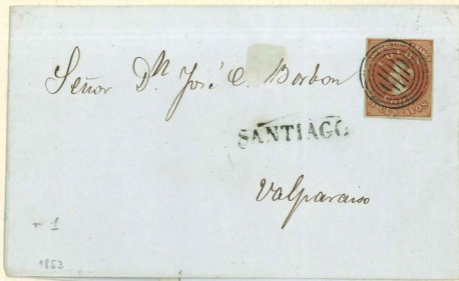 Señor Dn José C. Borbon
SANTIAGO
Valparaiso
CENTAVOS
1
1853